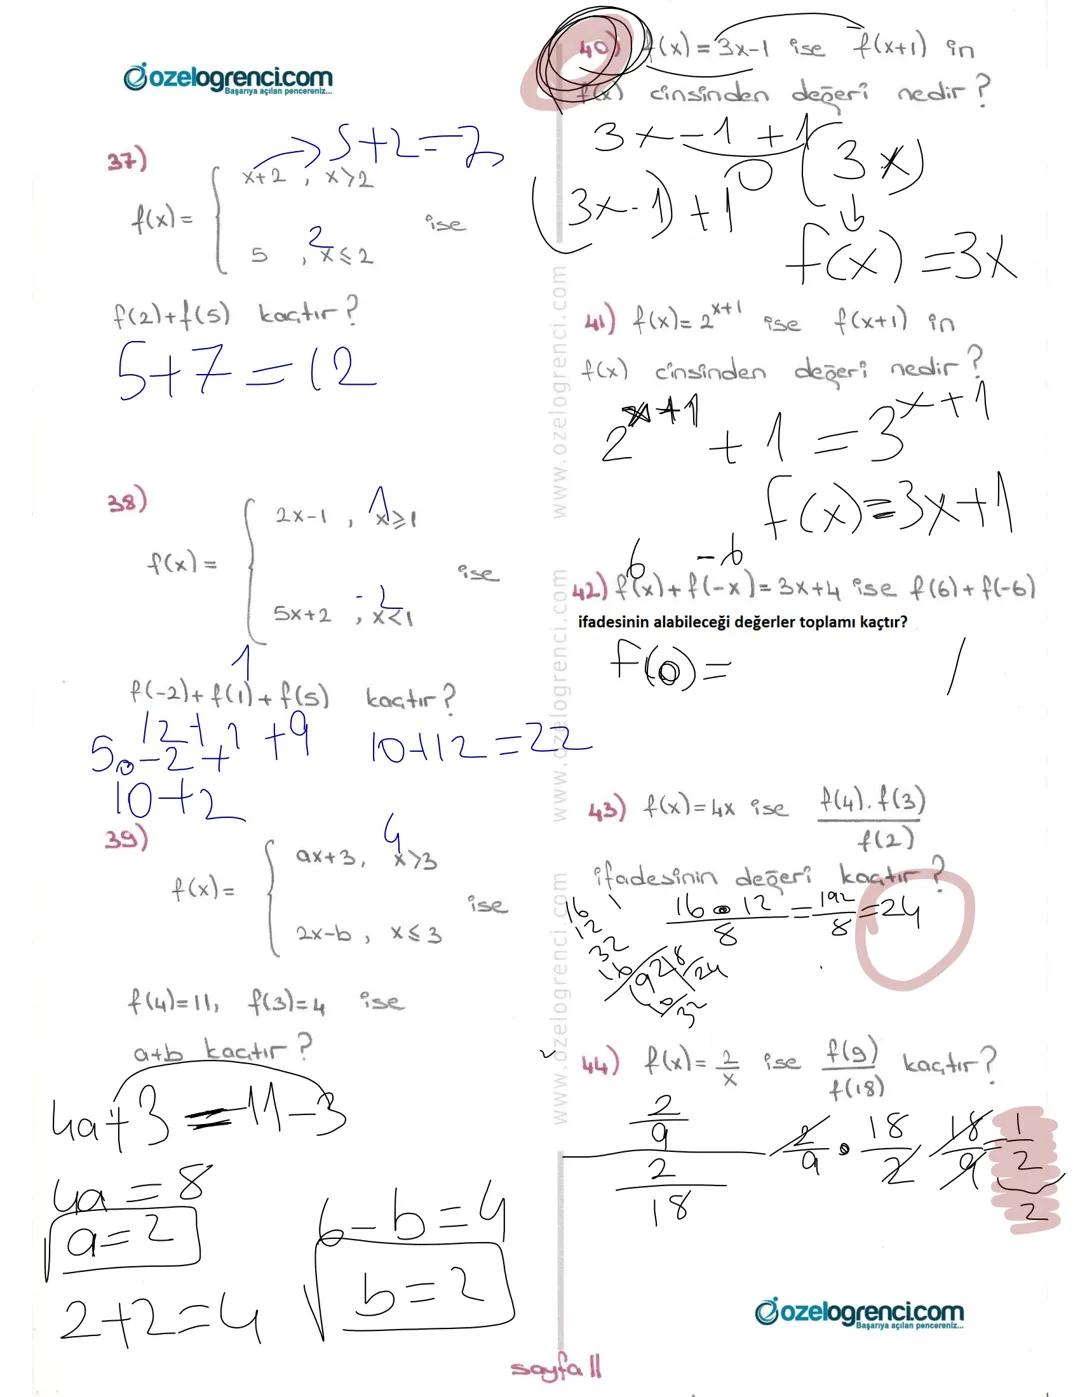 ozelogrenci.com
Başarıya açılan pencereniz...
37)
5+2=7
x+2 , x>2
f(x)=
ise
2
5 , x≤2
f(2)+f(5) kaçtır?
5+7=12
38)
1
2x-1 , x≥1
f(x)=
ise
-2
5x+2 , x<1
1
f(-2)+f(1)+f(5) kaçtır?
12+1+9 10+12=22
5.-2+
10+2
39)
4
ax+3, x>3
f(x)=
ise
2x-b, x≤3
f(4)=11, f(3)=4 ise
a+b kaçtır?
4a+3=11-3
4a=8
a=2
6-b=4
b=2
2+2=4
www.ozelogrenci.com
www.ozelogrenci.com
www.ozelogrenci.com
40) f(x)=3x-1 ise f(x+1) in
f(x) cinsinden değeri nedir?
3x-1+1 (3x)
0
(3x-1)+1
f(x)=3x
41) f(x)=2^x+1 ise f(x+1) in
f(x) cinsinden değeri nedir?
2^x+1 +1=3^x+1
f(x)=3x+1
6 -6
42) f(x)+f(-x)=3x+4 ise f(6)+f(-6)
ifadesinin alabileceği değerler toplamı kaçtır?
f(0)=
43) f(x)=4x ise f(4).f(3)
f(2)
ifadesinin değeri kaçtır?
16.12 = 192 = 24
8 8
16
12
32
16
192 8
24
32
44) f(x)= 2/x ise f(9)/f(18) kaçtır?
2/9
2/18
2/9 . 18/2 18/9 = 1/2
2
ozelogrenci.com
Başarıya açılan pencereniz...
sayfa 11